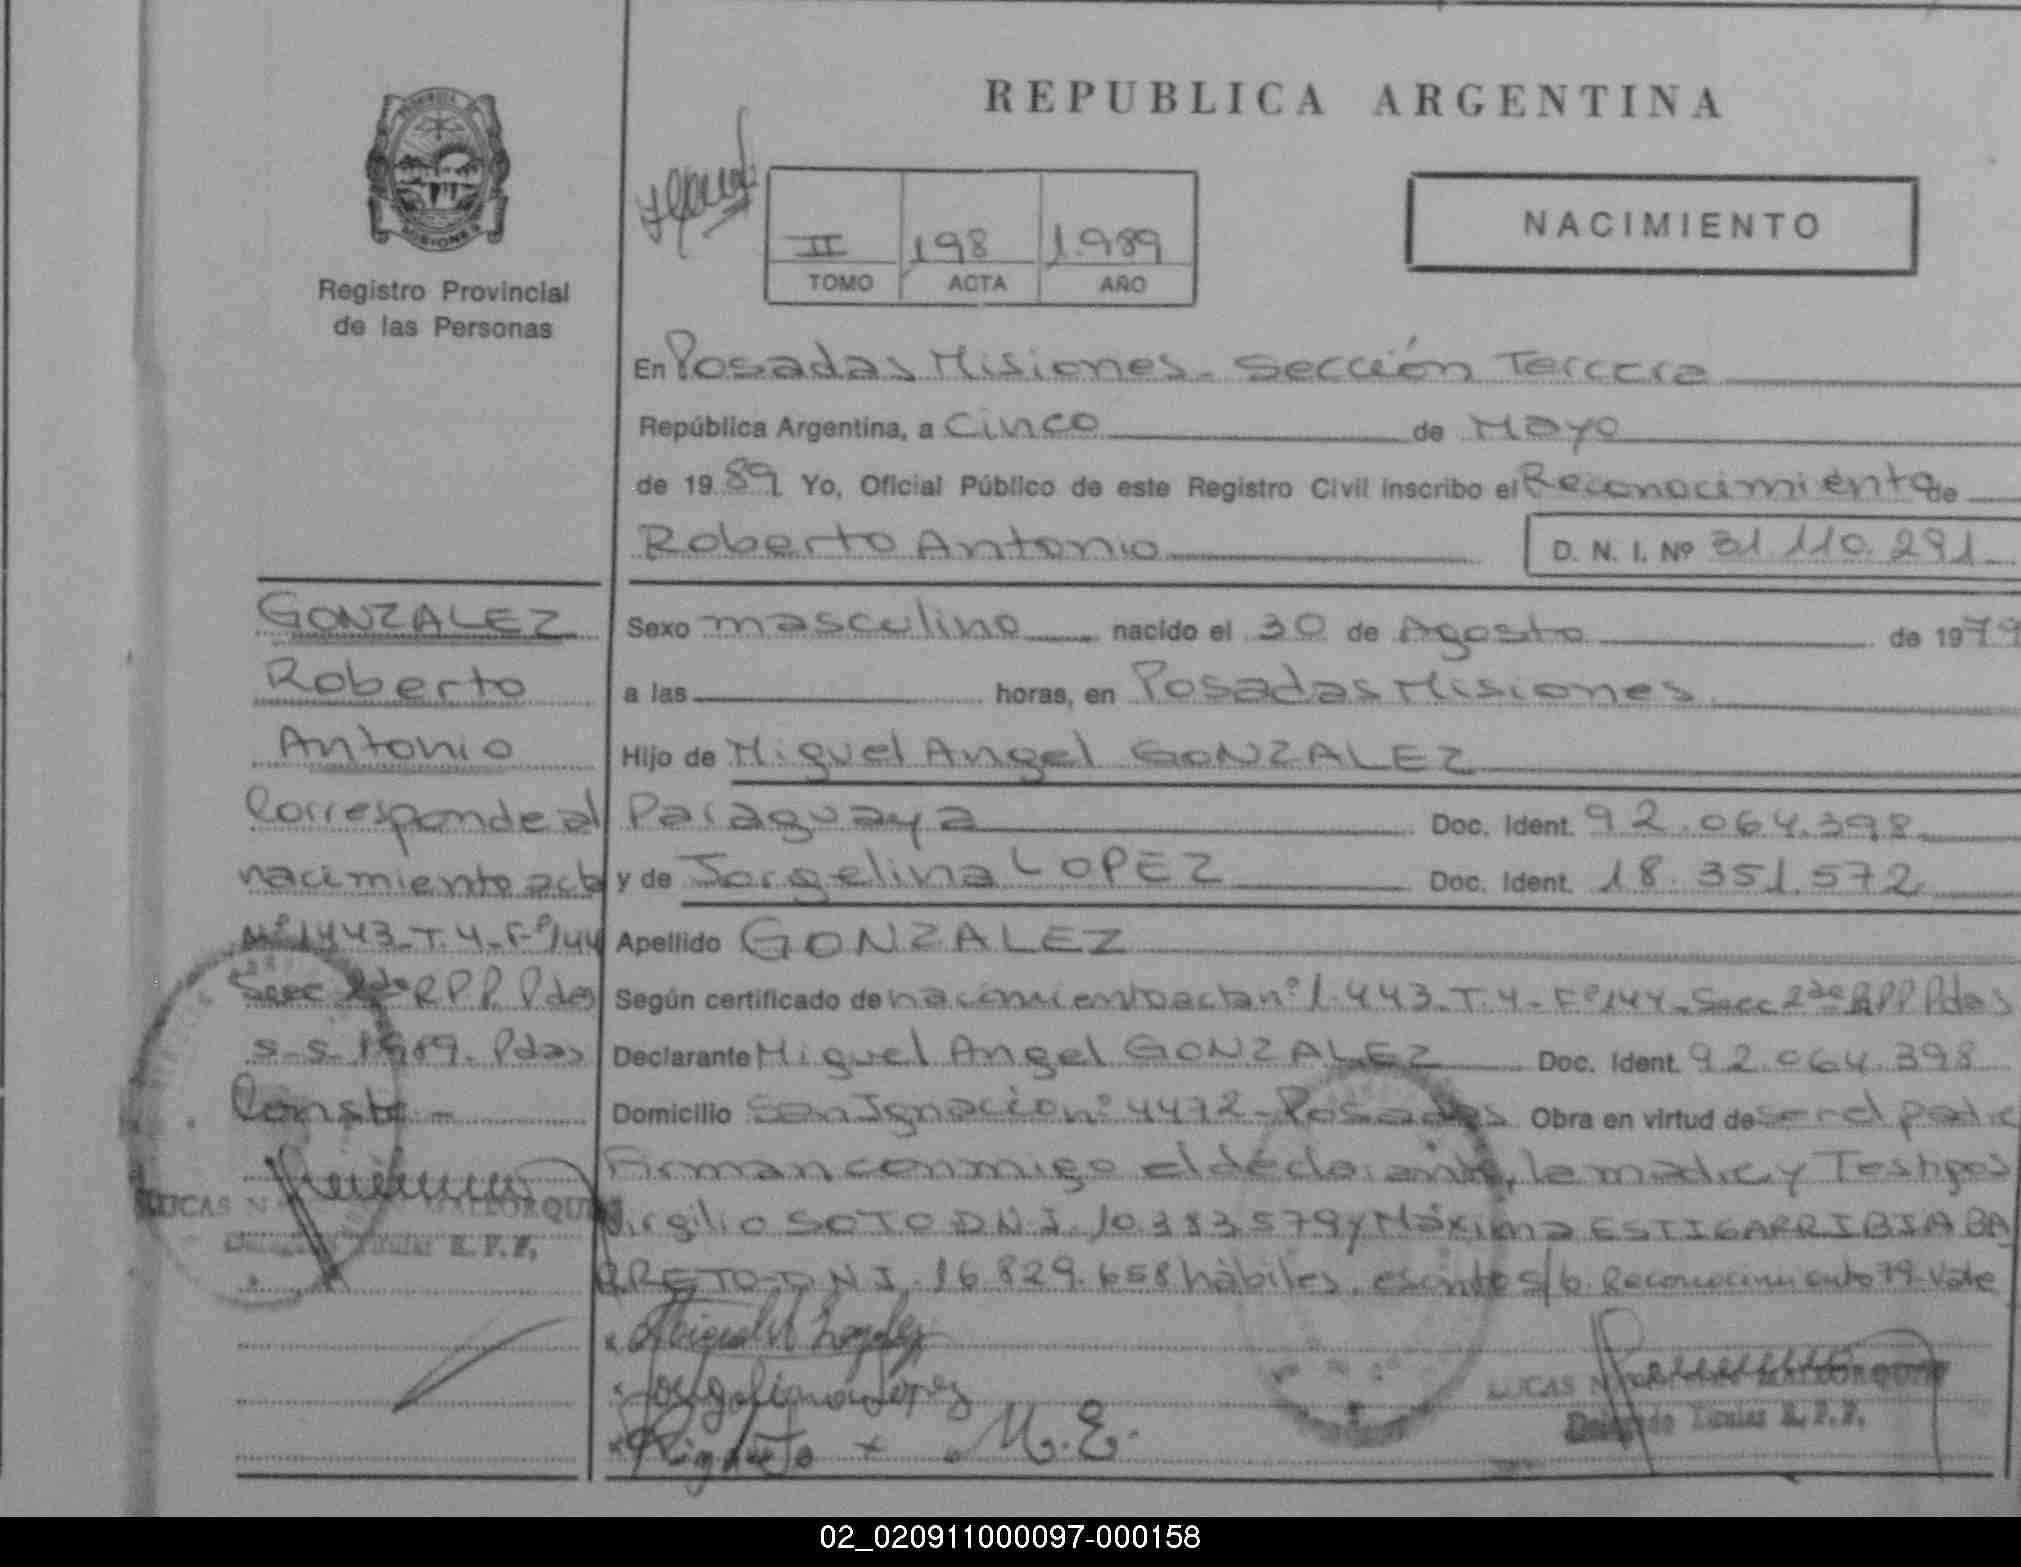 REPUBLICA ARGENTINA
MISIONES
Registro Provincial
de las Personas
II 198 1.989
TOMO ACTA AÑO
NACIMIENTO
En Posadas Misiones - Sección Tercera
República Argentina, a Cinco de Mayo
de 1989 Yo, Oficial Público de este Registro Civil inscribo el Reconocimiento de
Roberto Antonio D. N. I. Nº 31 110.291
GONZALEZ
Roberto
Antonio
Corresponde al
nacimiento acta
Nº 1443-T.4-Fº144
Secc 2da RPP Pdas
s-s-1989-Pdas
Conste-
LUCAS N MALLORQUIN
Titular R.P.P.
Sexo masculino nacido el 30 de Agosto de 1979
a las horas, en Posadas Misiones
Hijo de Miguel Angel GONZALEZ
Paraguaya Doc. Ident. 92.064.398
y de Jorgelina LOPEZ Doc. Ident. 18.351.572
Apellido GONZALEZ
Según certificado de nacimiento acta nº 1.443-T.4-Fº144-Secc 2da RPP Pdas
Declarante Miguel Angel GONZALEZ Doc. Ident. 92.064.398
Domicilio San Ignacio nº 4472-Posadas Obra en virtud de ser el padre
Firman conmigo el declarante, la madre y Testigos
Virgilio SOTO D.N.I. 10.383.579 y Máxima ESTIGARRIBIA BA
RRETO-D.N.I. 16.829.658 hábiles, escrito s/b. Reconocimiento 79-Vale
Jorgelina Lopez
M.E.
LUCAS N MALLORQUIN
Delegado Titular R.P.P.
02_020911000097-000158